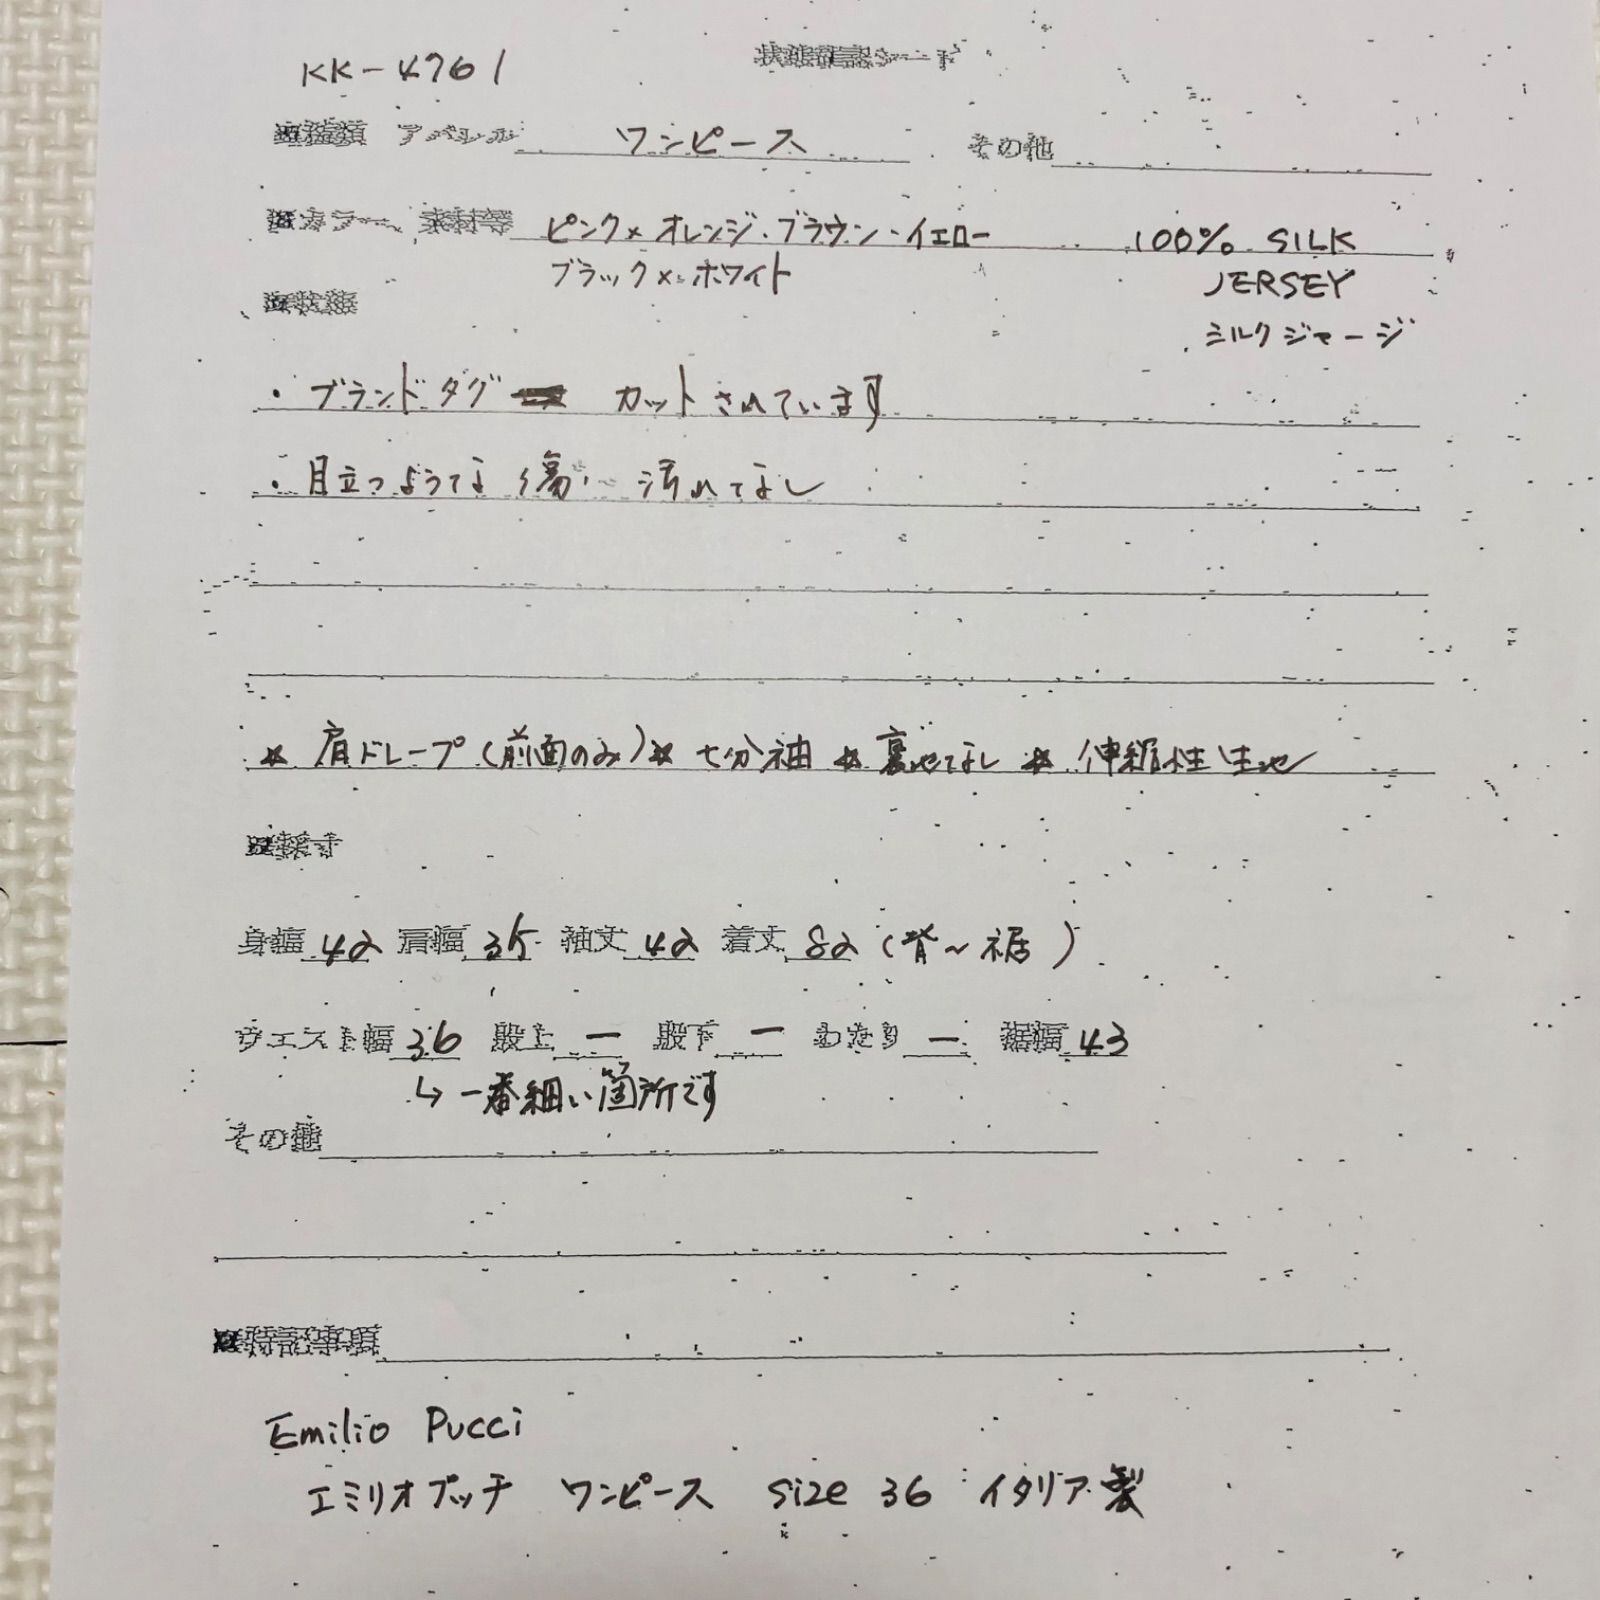 KK-4761 状態確認シート
■種類 アパレル ワンピース その他
■カラー、素材等 ピンク×オレンジ・ブラウン・イエロー 100% SILK
ブラック×ホワイト JERSEY
■状態 ミルクジャージ
・ブランドタグ カットされています
・目立つような傷・汚れてなし
* 肩ドレープ(前面のみ) * 七分袖 * 裏地なし * 伸縮性生地
■採寸
身幅 42 肩幅 35 袖丈 42 着丈 82 (背~裾)
ウエスト幅 36 股上 ー 股下 ー わたり ー 裾幅 43
↳ 一番細い箇所です
その他
■特記事項
Emilio Pucci
エミリオプッチ ワンピース size 36 イタリア製